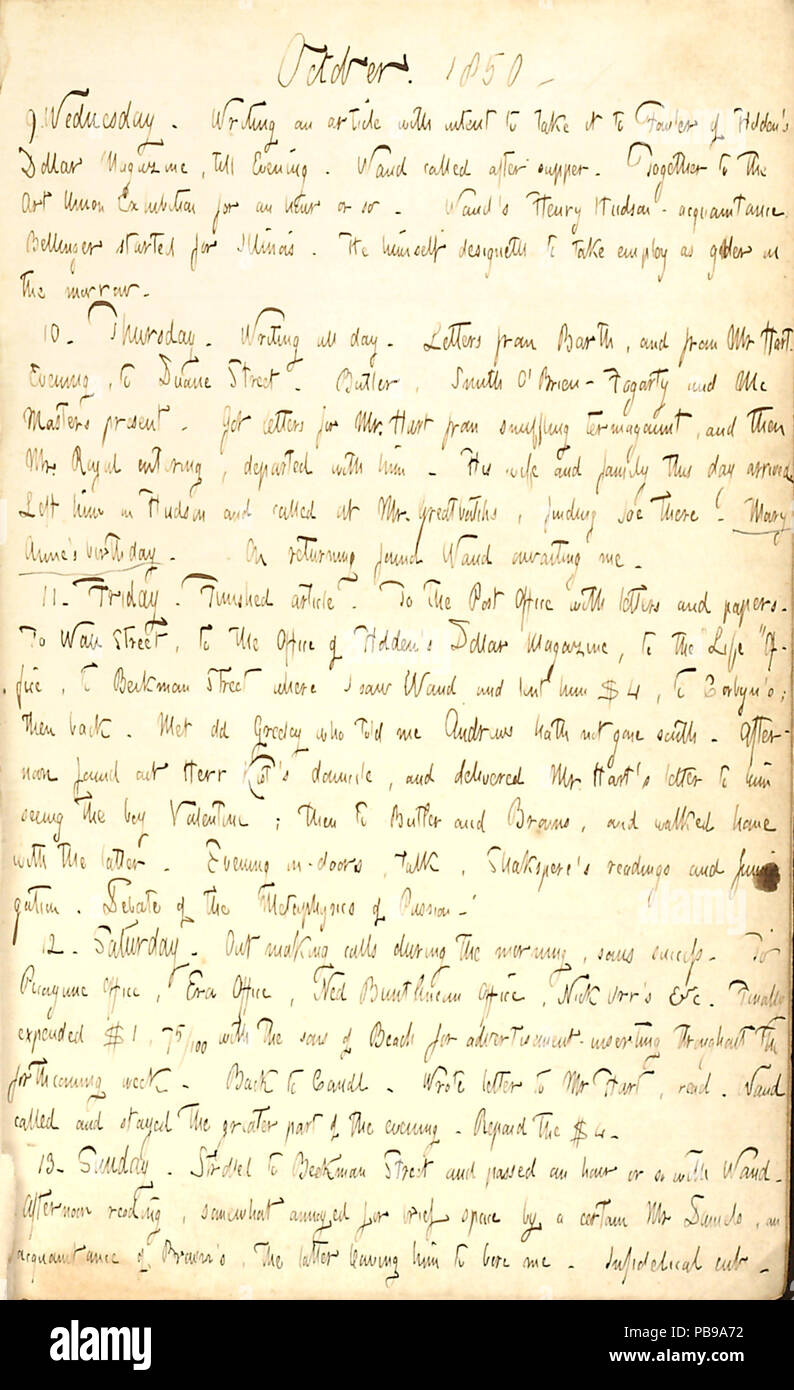 October. 1850 -
9. Wednesday. Writing an article with intent to take it to Fowler of Holden's
Dollar Magazine, till Evening. Waud called after supper. Together to the
Art Union Exhibition for an hour or so. Waud's Henry Hudson-acquaintance,
Bellinger started for Illinois. He himself designeth to take employ as gilder on
the morrow.
10. Thursday. Writing all day. Letters from Barth, and from Mr Hart.
Evening, to Duane Street. Butler, Smith O'Brien-Fogarty and Mc
Masters present. Got letters for Mr. Hart from snuffling termagaunt, and then
Mr Royal entering, departed with him. His wife and family this day arrived.
Left him in Hudson and called at Mr. Greatbatchs, finding Joe there. Mary
Anne's birthday. On returning found Waud awaiting me.
11. Friday. Finished article. To the Post Office with letters and papers.
To Wall Street, to the Office of Holden's Dollar Magazine, to the "Life" Of-
fice, to Beekman Street where I saw Waud and lent him $4, to Corbyn's;
then back. Met old Greeley who told me Andrews hath not gone south. After-
noon found out Herr Kist's domicile, and delivered Mr. Hart's letter to him
seeing the boy Valentine; then to Butler and Browns, and walked home
with the latter. Evening in-doors, talk, Shakspere's readings and fumi
gation. Debate of the Metaphysics of Passion.
12. Saturday. Out making calls during the morning, sans success. To
Picayune Office, Era Office, Ned Buntlinean Office, Nick Orr's &c. Finally
expended $1, 75/100 with the sons of Beach for advertisement-inserting throughout the
forthcoming week. Back to Canal. Wrote letter to Mr Hart, read. Waud
called and stayed the greater part of the evening. Repaid the $4.
13. Sunday. Strolled to Beekman Street and passed an hour or so with Waud.
Afternoon reading, somewhat annoyed for brief space by a certain Mr Daniels, an
acquaintance of Brown's, the latter leaving him to bore me. Infidelical cub.
alamy
alamy
Image ID: PB9A72
www.alamy.com